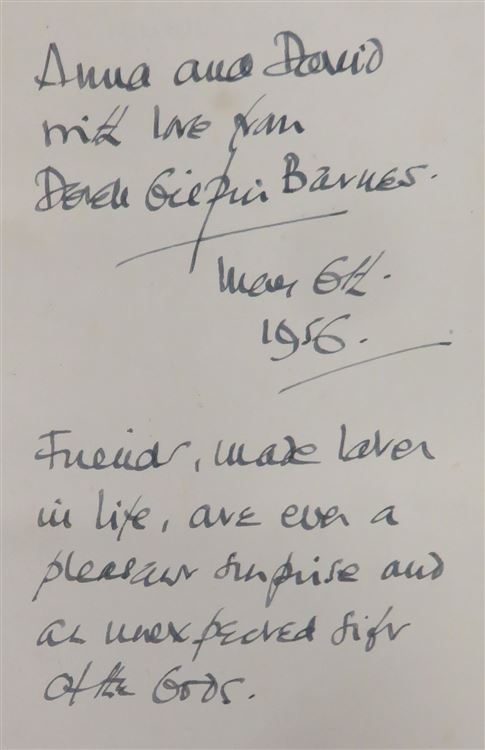 Anna and David
with love from
Derek Gilpin Barnes.
May 6th.
1956.
Friends, made later
in life, are ever a
pleasant surprise and
an unexpected gift
of the Gods.